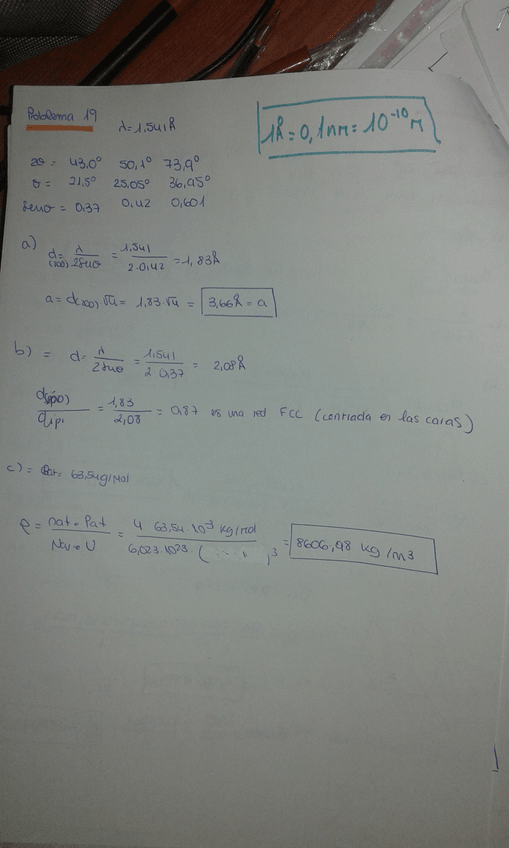 Problema 19
λ=1.541Å
1Å=0,1nm=10⁻¹⁰m
2θ = 43,0º 50,1º 73,9º
θ = 21,5º 25,05º 36,95º
senθ = 0,37 0,42 0,601
a) d(200) = λ/2senθ = 1.541/2·0,42 = 1,83Å
a = d(200) √4 = 1,83·√4 = 3,66Å = a
b) = d = λ/2senθ = 1.541/2 0.37 = 2,08Å
= 1,83/2,08 = 0,87 es una red FCC (centrada en las caras)
c) = Pat= 63,54g/mol
ρ = nat·Pat/Nav·V = 4 63,54·10⁻³ kg/mol/6,023·10²³·( )³ = 8606,98 kg/m³